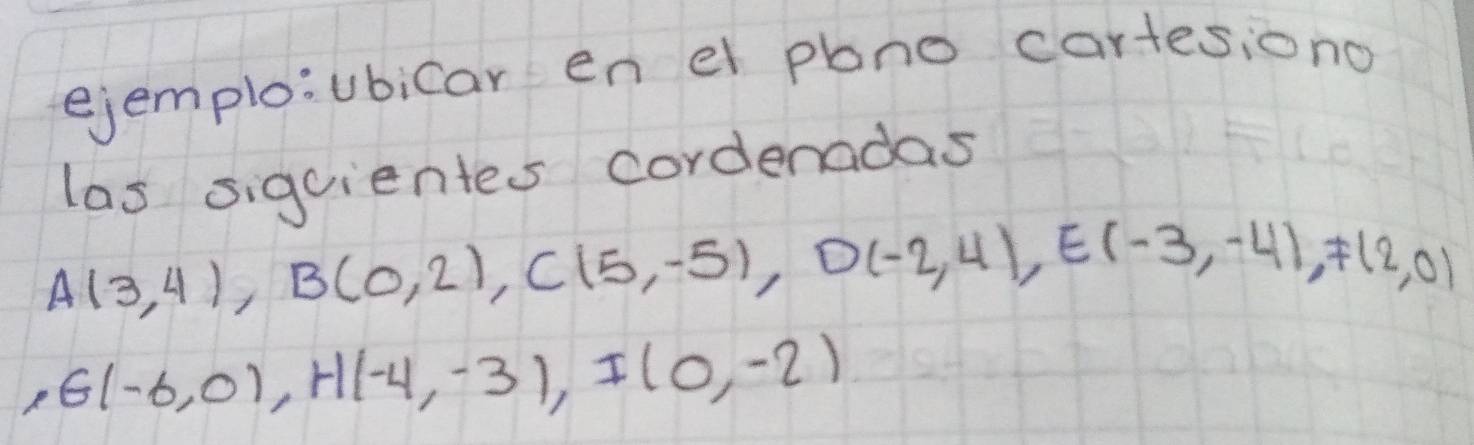 ejemplo: ubicar en el plano cartesiano
las siguientes cordenadas
A(3,4), B(0,2), C(5,-5), D(-2,4), E(-3,-4), F(2,0)
, G(-6,0), H(-4,-3), I(0,-2)